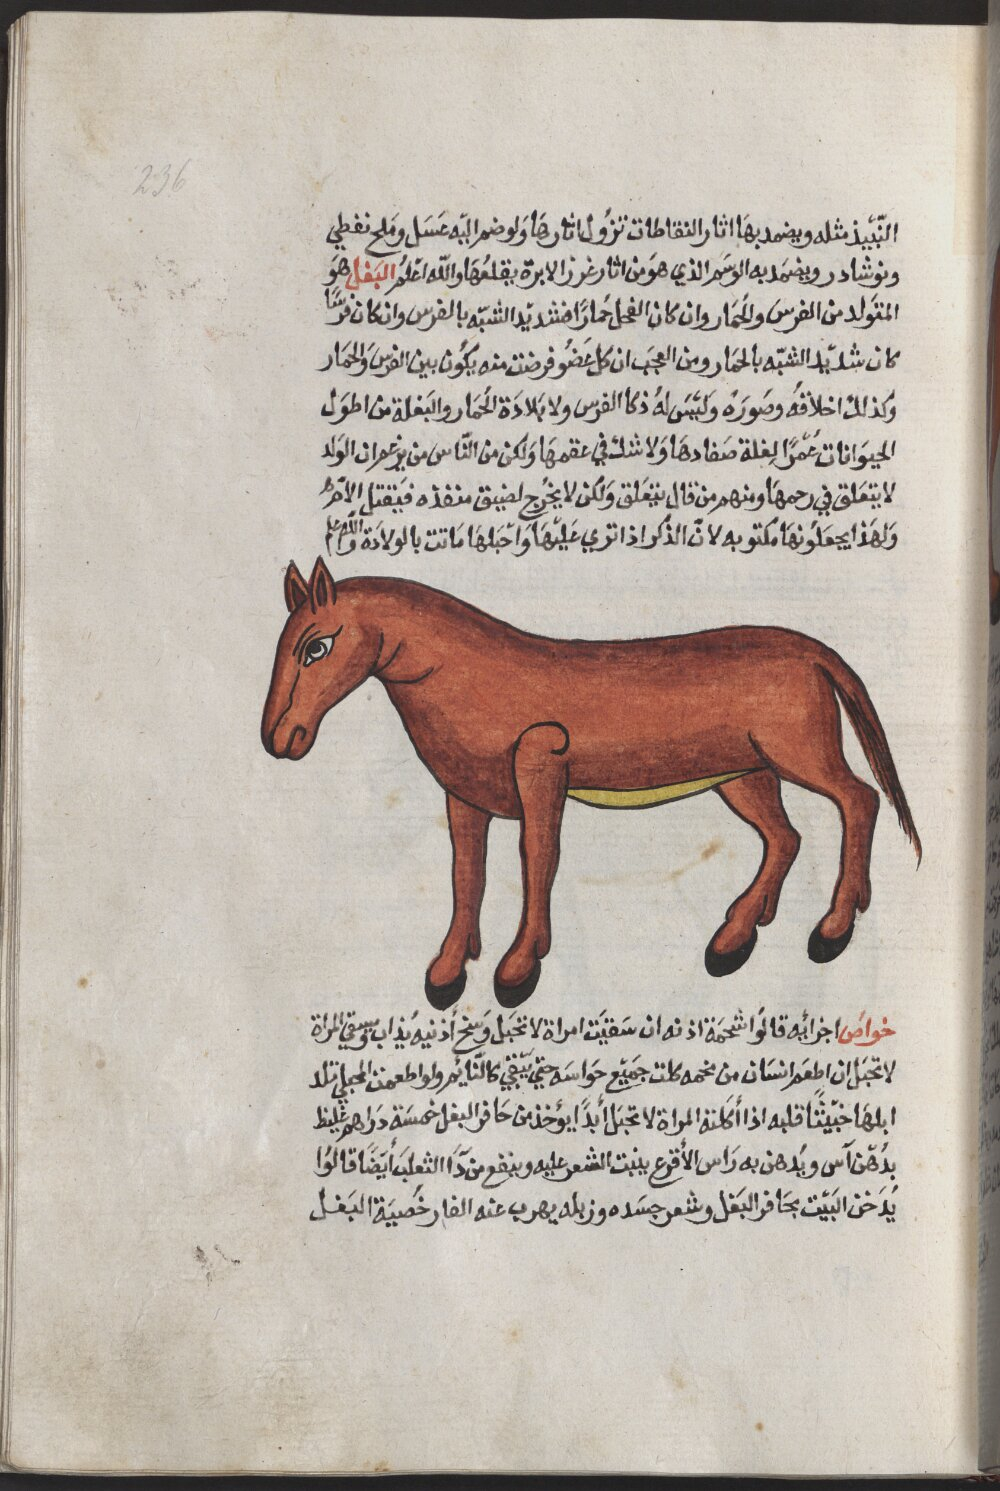 236
النّبيذ مثله ويضمد بها اثار النقاطات تزول اثارها ولو ضم اليه عسل وملح نفطي
ونوشادر ويضمد به الوسم الذي هو من اثار غرز الابرة يقلعها والله اعلم البغل هو
المتولد من الفرس والحمار وان كان الفحل حمارًا فشديد الشبه بالفرس وان كان فرسًا
كان شديد الشبه بالحمار ومن العجب ان كل عضو فرضت منه يكون بين الفرس والحمار
وكذلك اخلاقه وصوره وليس له ذكا الفرس ولا بلادة الحمار والبغلة من اطول
الحيوانات عمرًا لغلة صفادها ولا شك في عقمها ولكن من الناس من يزعم ان الولد
لا يتعلق في رحمها ومنهم من قال يتعلق ولكن لا يخرج لضيق منفذه فيقتل الام
ولهذا يجعلونها مكتوبه لان الذكر اذا نزي عليها واحبلها ماتت بالولادة والله اعلم
خواص اجزائه قالوا شحمة اذنه ان سقيت امراة لا تحبل وسخ أذنيه يذاب ويسقي المراة
لا تحبل ان اطعم انسان من مخمه كلت جميع حواسه حتي يبقي كالنايم ولو اطعمت الحبلي تلد
ابلها خبيثًا قلبه اذا أكلته المراة لا تحبل أبدًا يؤخذ من حافر البغل خمسة دراهم غليظ
بدهن آس ويدهن به راس الأقرع ينبت الشعر عليه وينفع من دآ الثعلب أيضًا قالوا
يدخن البيت بحافر البغل وشعر جسده وزبله يهرب عنه الفار خصية البغل